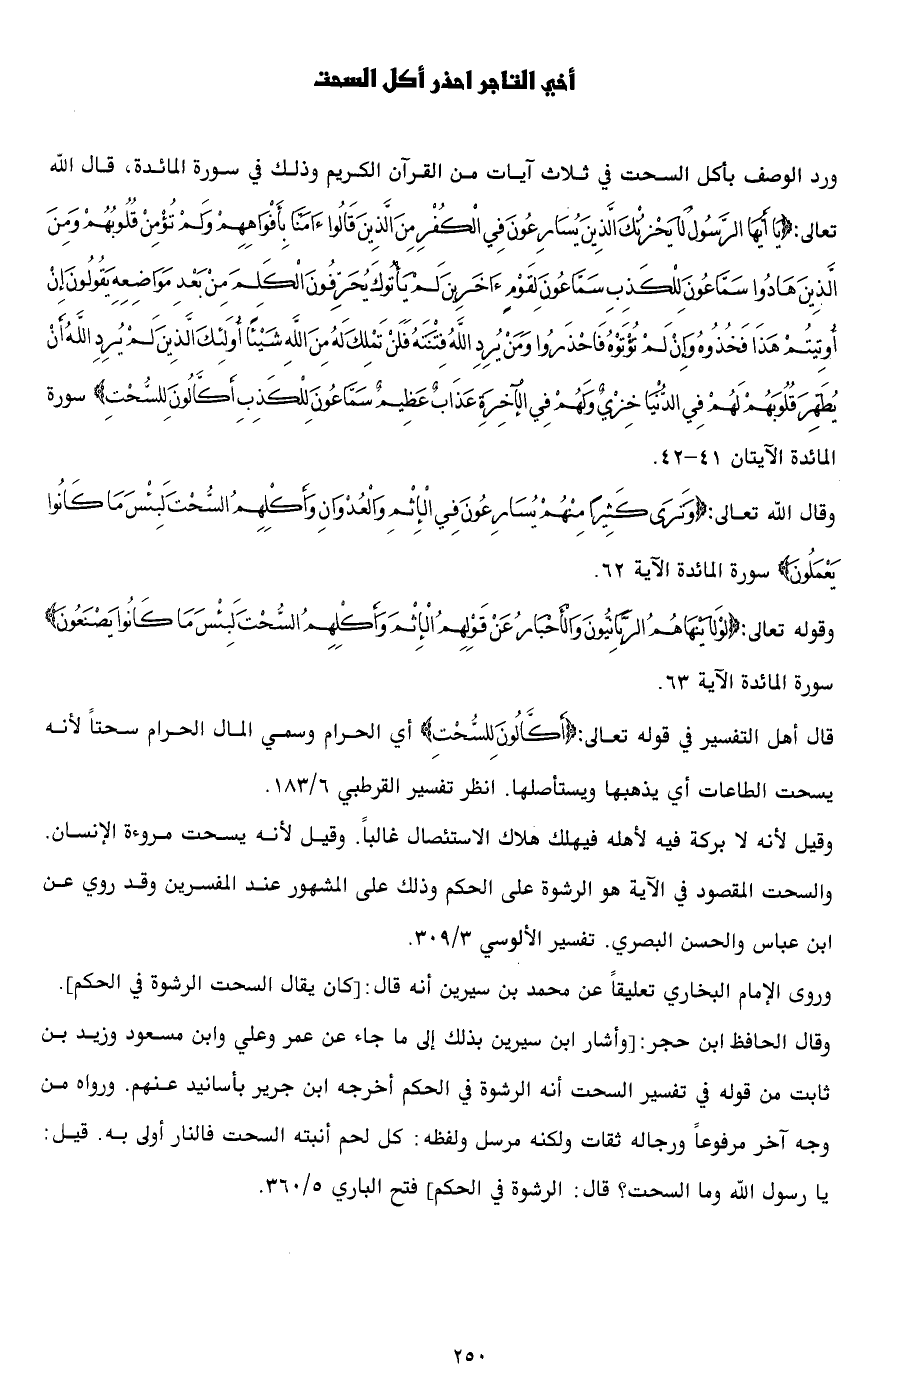 أخي التاجر احذر أكل السحت
ورد الوصف بأكل السحت في ثلاث آيات من القرآن الكريم وذلك في سورة المائدة، قال الله
تعالى:﴿يَا أَيُّهَا الرَّسُولُ لَا يَحْزُنْكَ الَّذِينَ يُسَارِعُونَ فِي الْكُفْرِ مِنَ الَّذِينَ قَالُوا ءَامَنَّا بِأَفْوَاهِهِمْ وَلَمْ تُؤْمِنْ قُلُوبُهُمْ وَمِنَ
الَّذِينَ هَادُوا سَمَّاعُونَ لِلْكَذِبِ سَمَّاعُونَ لِقَوْمٍ ءَاخَرِينَ لَمْ يَأْتُوكَ يُحَرِّفُونَ الْكَلِمَ مِنْ بَعْدِ مَوَاضِعِهِ يَقُولُونَ إِنْ
أُوتِيتُمْ هَذَا فَخُذُوهُ وَإِنْ لَمْ تُؤْتَوْهُ فَاحْذَرُوا وَمَنْ يُرِدِ اللَّهُ فِتْنَتَهُ فَلَنْ تَمْلِكَ لَهُ مِنَ اللَّهِ شَيْئًا أُولَئِكَ الَّذِينَ لَمْ يُرِدِ اللَّهُ أَنْ
يُطَهِّرَ قُلُوبَهُمْ لَهُمْ فِي الدُّنْيَا خِزْيٌ وَلَهُمْ فِي الْآخِرَةِ عَذَابٌ عَظِيمٌ سَمَّاعُونَ لِلْكَذِبِ أَكَّالُونَ لِلسُّحْتِ﴾ سورة
المائدة الآيتان ٤١-٤٢.
وقال الله تعالى:﴿وَتَرَى كَثِيرًا مِنْهُمْ يُسَارِعُونَ فِي الْإِثْمِ وَالْعُدْوَانِ وَأَكْلِهِمُ السُّحْتَ لَبِئْسَ مَا كَانُوا
يَعْمَلُونَ﴾ سورة المائدة الآية ٦٢.
وقوله تعالى:﴿لَوْلَا يَنْهَاهُمُ الرَّبَّانِيُّونَ وَالْأَحْبَارُ عَنْ قَوْلِهِمُ الْإِثْمَ وَأَكْلِهِمُ السُّحْتَ لَبِئْسَ مَا كَانُوا يَصْنَعُونَ﴾
سورة المائدة الآية ٦٣.
قال أهل التفسير في قوله تعالى:﴿أَكَّالُونَ لِلسُّحْتِ﴾ أي الحرام وسمي المال الحرام سحتاً لأنه
يسحت الطاعات أي يذهبها ويستأصلها. انظر تفسير القرطبي ١٨٣/٦.
وقيل لأنه لا بركة فيه لأهله فيهلك هلاك الاستئصال غالباً. وقيل لأنه يسحت مروءة الإنسان.
والسحت المقصود في الآية هو الرشوة على الحكم وذلك على المشهور عند المفسرين وقد روي عن
ابن عباس والحسن البصري. تفسير الألوسي ٣٠٩/٣.
وروى الإمام البخاري تعليقاً عن محمد بن سيرين أنه قال:[كان يقال السحت الرشوة في الحكم].
وقال الحافظ ابن حجر:[وأشار ابن سيرين بذلك إلى ما جاء عن عمر وعلي وابن مسعود وزيد بن
ثابت من قوله في تفسير السحت أنه الرشوة في الحكم أخرجه ابن جرير بأسانيد عنهم. ورواه من
وجه آخر مرفوعاً ورجاله ثقات ولكنه مرسل ولفظه: كل لحم أنبته السحت فالنار أولى به. قيل:
يا رسول الله وما السحت؟ قال: الرشوة في الحكم] فتح الباري ٣٦٠/٥.
٢٥٠